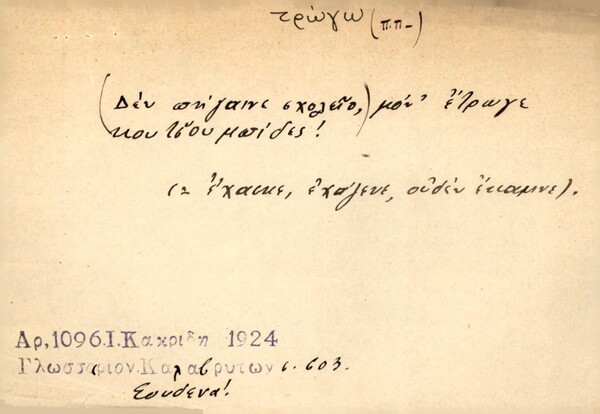 τρώγω (π.π-)
(Δέν πήγαινε σχολεῖο,) μόν' ἔτρωγε
κουτσουμπίδες!
(= ἔχασκε, ἐχάζευε, οὐδέν ἔκαμνε).
Αρ,1096.Ι.Κακριδη 1924
Γλωσσάριον Καλαβρύτων σ. 603.
Σουδενα!